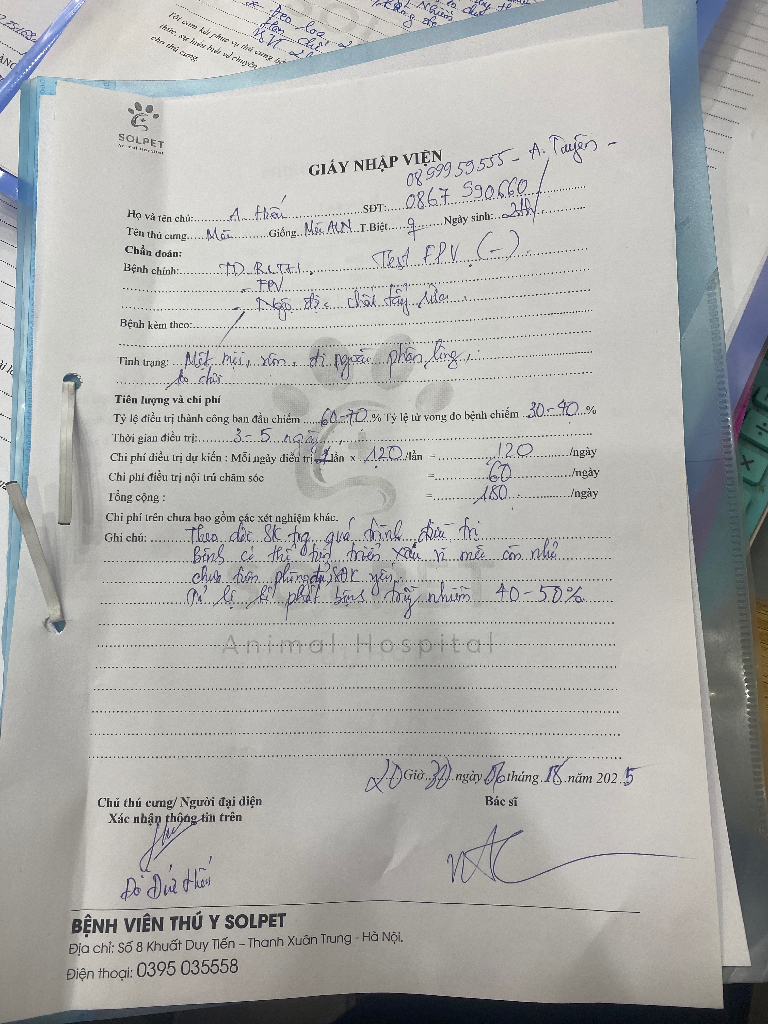 SOLPET
Animal Hospital
GIẤY NHẬP VIỆN
0899959555 - A. Tuyên -
Họ và tên chủ: A. Hiếu SĐT: 0867 590660
Tên thú cưng: Mèo Giống: Mèo ALN T.Biệt: ♀ Ngày sinh: 2th
Chẩn đoán:
Bệnh chính: TD. RLTH. Test FPV (-)
- FPV
- Ngộ độc chất tẩy rửa
Bệnh kèm theo:
Tình trạng: Mệt mỏi, nôn, đi ngoài phân lỏng,
bỏ chơi
Tiên lượng và chi phí
Tỷ lệ điều trị thành công ban đầu chiếm 60-70 % Tỷ lệ tử vong do bệnh chiếm 30-40 %
Thời gian điều trị: 3-5 ngày
Chi phí điều trị dự kiến : Mỗi ngày điều trị 1 lần x 120 /lần = 120 /ngày
Chi phí điều trị nội trú chăm sóc = 60 /ngày
Tổng cộng : = 180 /ngày
Chi phí trên chưa bao gồm các xét nghiệm khác.
Ghi chú: Theo dõi SK trg quá trình điều trị
Bệnh có thể tiến triển xấu vì mèo còn nhỏ
chưa tiêm phòng đủ, SĐK yếu
Tỉ lệ phát bệnh truyền nhiễm 40-50%
SOLPET
Animal Hospital
20 Giờ 30 ngày 06 tháng 18 năm 2025
Chủ thú cưng/ Người đại diện Bác sĩ
Xác nhận thông tin trên
Đỗ Đức Hiếu
BỆNH VIỆN THÚ Y SOLPET
Địa chỉ: Số 8 Khuất Duy Tiến – Thanh Xuân Trung - Hà Nội.
Điện thoại: 0395 035558